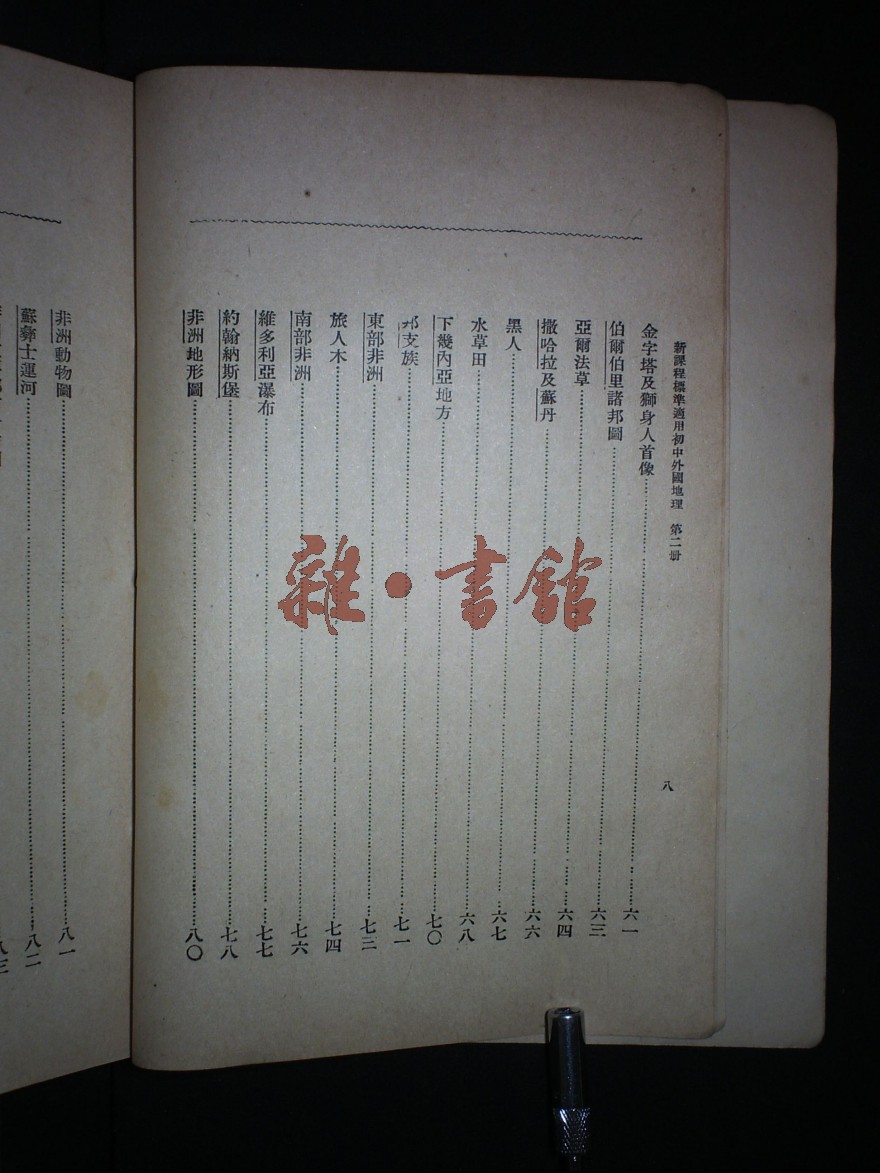 新課程標準適用初中外國地理 第二册
八
金字塔及獅身人首像 六一
伯爾伯里諸邦圖 六三
亞爾法草 六四
撒哈拉及蘇丹 六六
黑人 六七
水草田 六八
下幾內亞地方 七〇
支族 七一
東部非洲 七三
旅人木 七四
南部非洲 七六
維多利亞瀑布 七七
約翰納斯堡 七八
非洲地形圖 八〇
非洲動物圖 八一
蘇彝士運河 八二
八三
雜·書館